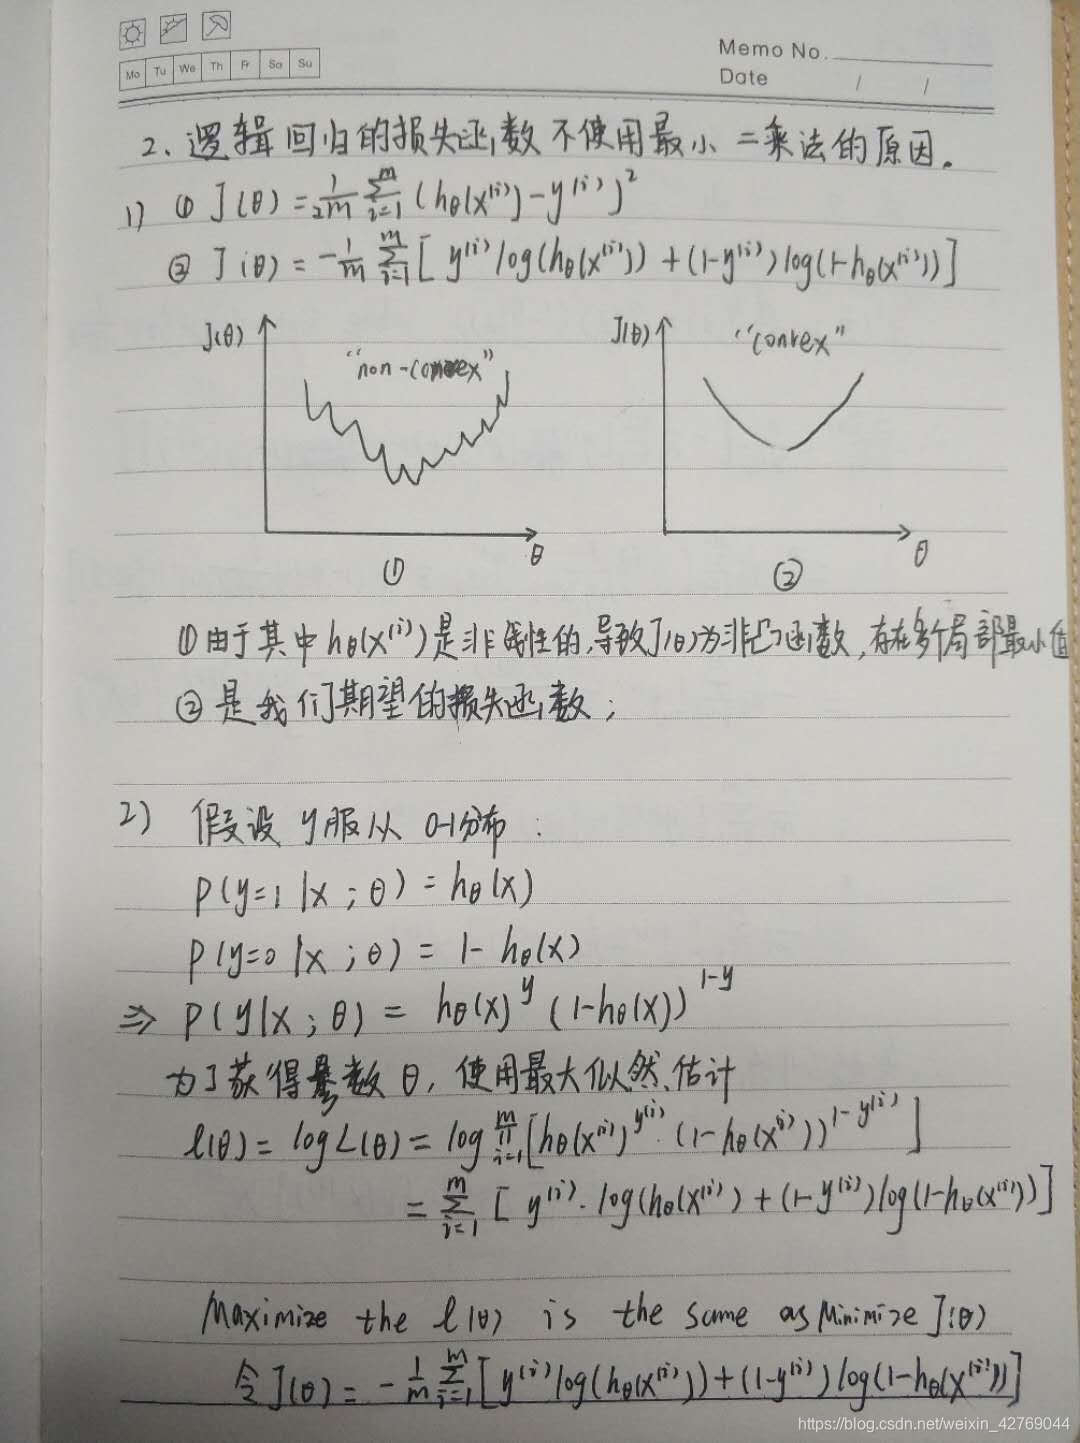 Memo No.
Mo Tu We Th Fr Sa Su
Date / /
2、逻辑回归的损失函数不使用最小二乘法的原因。
1) ① J(θ) = 1/2m Σ_{i=1}^{m} (hθ(x⁽ⁱ⁾) - y⁽ⁱ⁾)²
② J(θ) = -1/m Σ_{i=1}^{m} [ y⁽ⁱ⁾ log(hθ(x⁽ⁱ⁾)) + (1-y⁽ⁱ⁾) log(1-hθ(x⁽ⁱ⁾)) ]
J(θ) "non-convex" θ ①
J(θ) "convex" θ ②
①由于其中hθ(x⁽ⁱ⁾)是非线性的,导致J(θ)为非凸函数,存在多个局部最小值
②是我们期望的损失函数;
2) 假设 y服从 0-1分布:
P(y=1|x;θ) = hθ(x)
P(y=0|x;θ) = 1-hθ(x)
⇒ P(y|x;θ) = hθ(x)^y (1-hθ(x))^{1-y}
为了获得参数θ,使用最大似然估计
l(θ) = log L(θ) = log Π_{i=1}^{m} [hθ(x⁽ⁱ⁾)^{y⁽ⁱ⁾}·(1-hθ(x⁽ⁱ⁾))^{1-y⁽ⁱ⁾}]
= Σ_{i=1}^{m} [ y⁽ⁱ⁾·log(hθ(x⁽ⁱ⁾) + (1-y⁽ⁱ⁾)log(1-hθ(x⁽ⁱ⁾)) ]
Maximize the l(θ) is the same as Minimize J(θ)
令J(θ) = -1/m Σ_{i=1}^{m} [y⁽ⁱ⁾log(hθ(x⁽ⁱ⁾)) + (1-y⁽ⁱ⁾)log(1-hθ(x⁽ⁱ⁾))]
https://blog.csdn.net/weixin_42769044